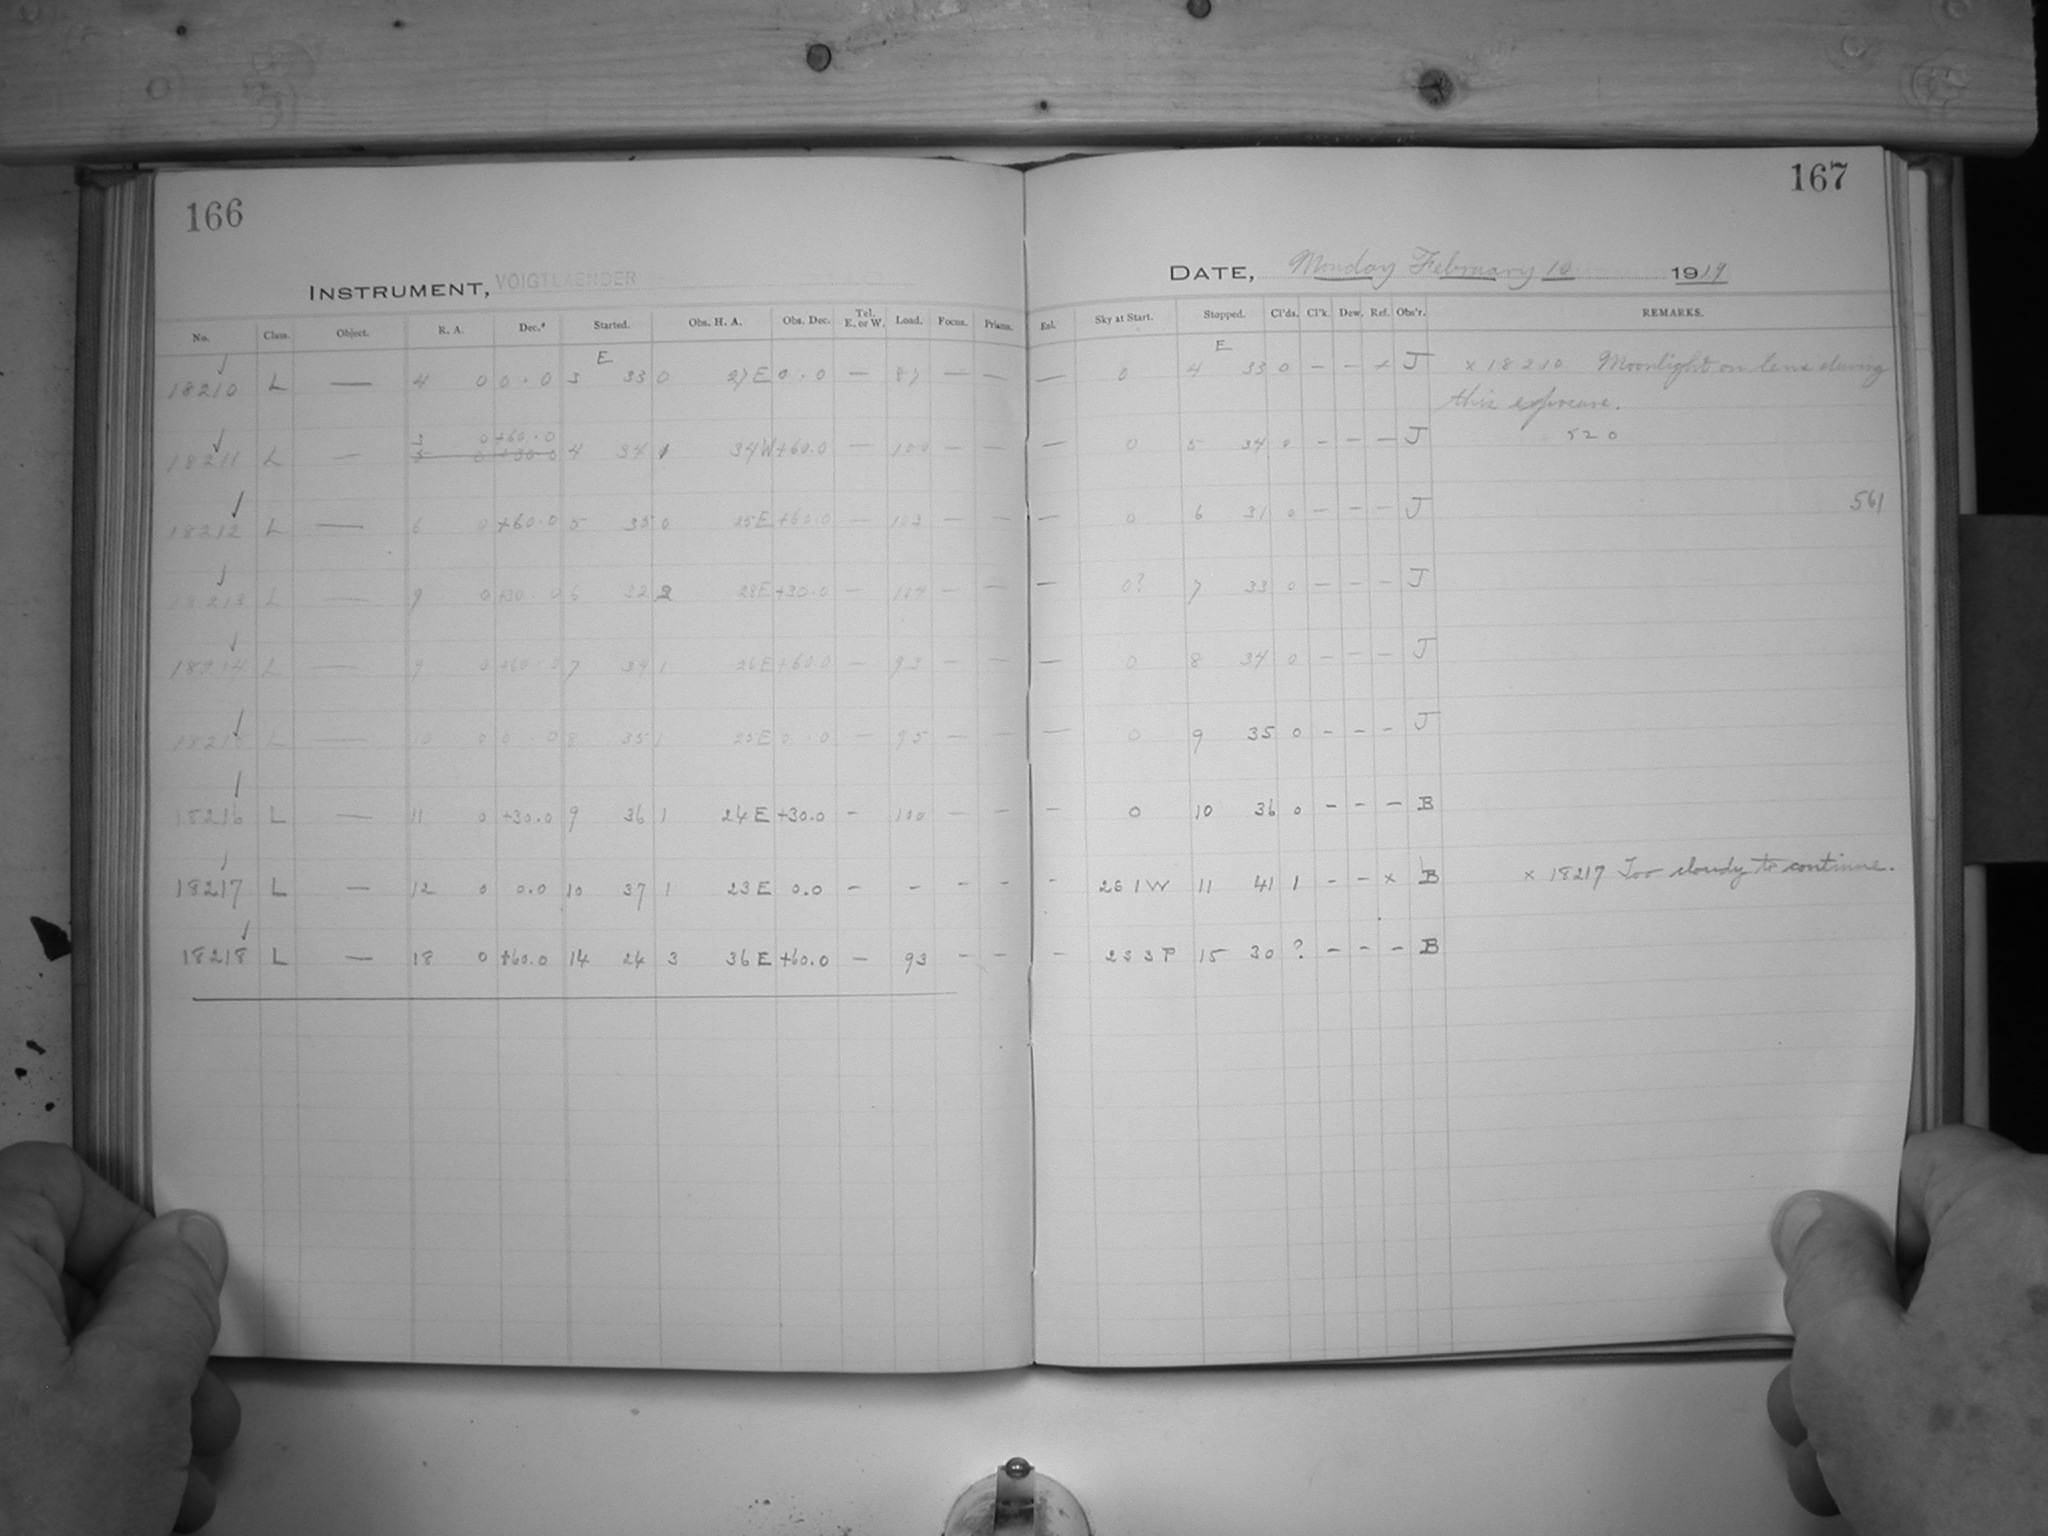 166
167
INSTRUMENT, VOIGTLAENDER
DATE, Monday February 10 1919
No. Class. Object. R. A. Dec. Started. Obs. H. A. Obs. Dec. Tel. E. or W. Load. Focus. Prisms. Exl. Sky at Start. Stopped. Cl'ds. Cl'k. Dew. Ref. Obs'r. REMARKS.
E E
18210 L — 4 0 0.0 3 33 0 27 E 0.0 — 87 — — — 0 4 33 0 – – x J x 18210 Moonlight on lens during
this exposure.
3 0 +60.0
18211 L — 0 +30.0 4 34 1 34 W +60.0 — 100 — — — 0 5 34 0 – – – J 520
18212 L — 6 0 +60.0 5 35 0 25 E +60.0 — 103 — — — 0 6 31 0 – – – J 561
18213 L — 9 0 +30.0 6 32 2 28 E +30.0 — 104 — — — 0? 7 33 0 – – – J
18214 L — 9 0 +60.0 7 34 1 26 E +60.0 — 93 — — — 0 8 34 0 – – – J
18215 L — 10 0 0.0 8 35 1 25 E 0.0 — 95 — — — 0 9 35 0 – – – J
18216 L — 11 0 +30.0 9 36 1 24 E +30.0 – 100 – – – 0 10 36 0 – – – B
18217 L — 12 0 0.0 10 37 1 23 E 0.0 – – – – – 2S 1 W 11 41 1 – – x B x 18217 Too cloudy to continue.
18218 L — 18 0 +60.0 14 24 3 36 E +60.0 – 93 – – – 2S 3 P 15 30 ? – – – B